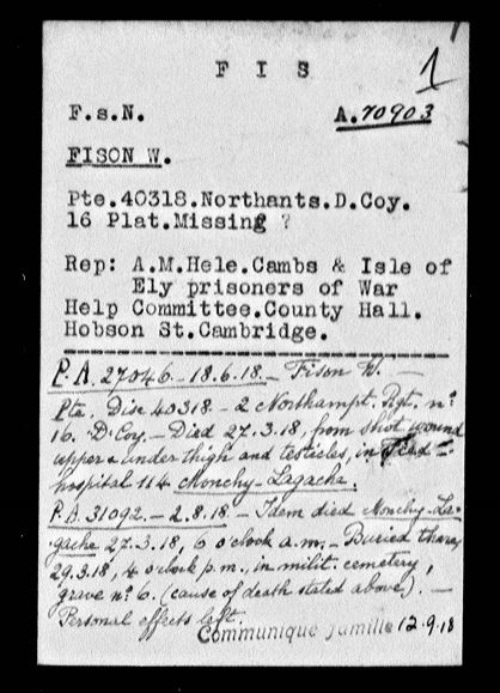 F I S
1
F.s.N. A.70903
FISON W.
Pte.40318.Northants.D.Coy.
16 Plat.Missing ?
Rep: A.M.Hele.Cambs & Isle of
Ely prisoners of War
Help Committee.County Hall.
Hobson St.Cambridge.
P.A. 27046 - 18.6.18. - Fison W. -
Pte. Disc 40318 - 2 Northampt. Rgt. nº
16. D. Coy. - Died 27.3.18, from shot wound
upper & under thigh and testicles, in Field -
hospital 114 Monchy-Lagache.
P.A. 31092. - 2.8.18 - Idem died Monchy-La-
gache 27.3.18, 6 o'clock a.m. - Buried there,
29.3.18, 4 o'clock p.m., in milit. cemetery,
grave nº 6. (cause of death stated above). -
Personal effects left.
Communiqué famille 12.9.18